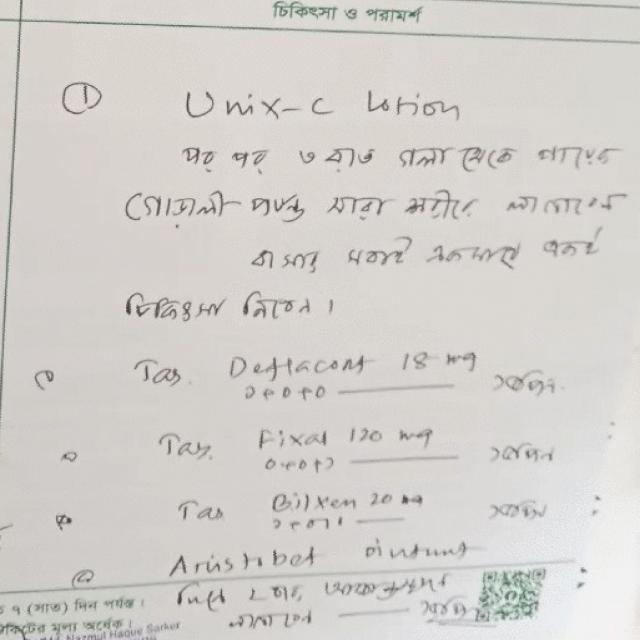 চিকিৎসা ও পরামর্শ
① Unix-C Lotion
পর পর ৩ রাত গলা থেকে পায়ের
গোড়ালী পর্যন্ত সারা শরীরে লাগাবেন
বাসার সবাই একসাথে একই
চিকিৎসা নিবেন।
Tab. Deflacort 18 mg
১+০+০
Tab. Fixal 120 mg
০+০+১
Tab Bilxen 20 mg
Aristobet ointment
দিনে ২ বার
লাগাবেন
৭ (সাত) দিন পর্যন্ত।
Nazmul Haque Sarker